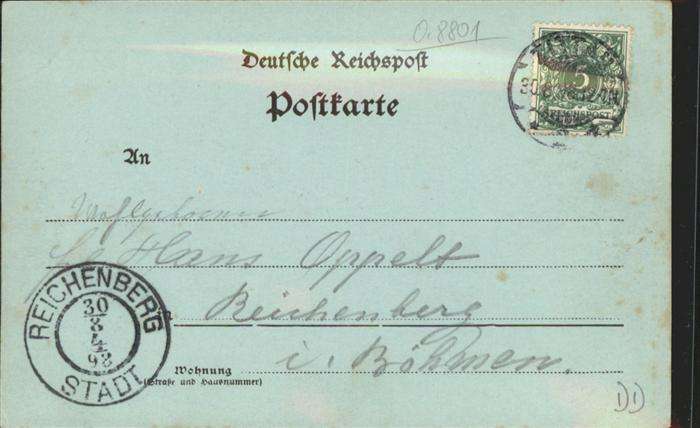 0.8801
Deutsche Reichspost
Postkarte
5
REICHSPOST
An
Wohlgeboren
Hans Oppelt
Reichenberg
i. Böhmen.
REICHENBERG
30
8
98
STADT
Wohnung
(Straße und Hausnummer)